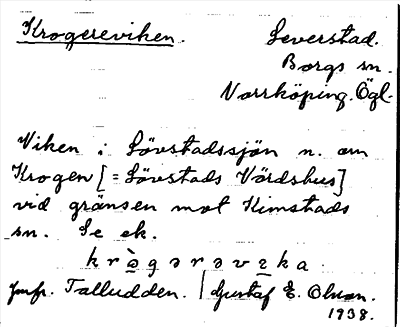 Krogereviken. Leverstad.
Borgs sn.
Norrköping. Ögl.
Viken i Lövstadssjön n. om
Krogen [= Lövstads Värdshus]
vid gränsen mot Kimstads
sn. Se ek.
krə̀gərəveka.
Jmfr. Talludden. | Gustaf E. Olsson.
1938.